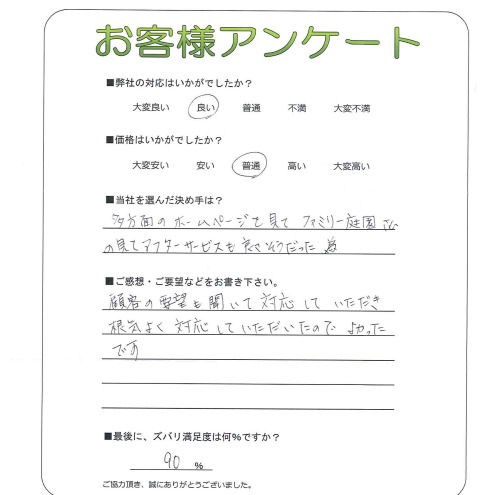 お客様アンケート
■弊社の対応はいかがでしたか？
大変良い 良い 普通 不満 大変不満
■価格はいかがでしたか？
大変安い 安い 普通 高い 大変高い
■当社を選んだ決め手は？
多方面のホームページを見て ファミリー庭園さん
の見てアフターサービスも良さそうだった
■ご感想・ご要望などをお書き下さい。
顧客の要望も聞いて対応していただき
根気よく対応していただいたので よかった
です
■最後に、ズバリ満足度は何%ですか？
90 %
ご協力頂き、誠にありがとうございました。